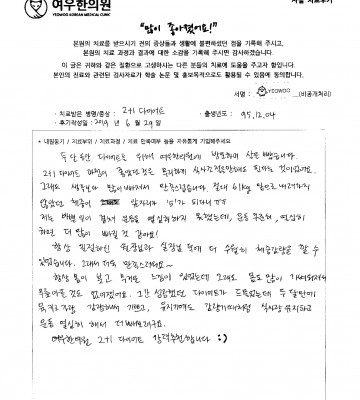 여우한의원
YEOWOO KOREAN MEDICAL CLINIC
"많이 좋아졌어요!"
본원의 치료를 받으시기 전의 증상들과 생활에 불편하셨던 점을 기록해 주시고,
본원의 치료 과정과 결과에 대한 소감을 기록해 주시면 감사하겠습니다.
이 글은 귀하와 같은 질환으로 고생하시는 다른 분들의 치료에 도움을 주고자 함입니다.
본인의 진료와 관련된 검사자료가 학술 논문 및 홍보목적으로도 활용될 수 있음에 동의합니다.
서명 : YEOWOO (비공개처리)
· 치료받은 병명/증상 : 2+1 다이어트 · 출생년도 : 95.12.04
· 후기작성일 : 2019 년 6 월 29 일
* 내원동기 / 치료부위 / 치료과정 / 치료 만족여부 등을 자유롭게 기입해주세요
두 달 동안 다이어트를 위해서 여우한의원에 방문하며 살을 뺐습니다.
2+1 다이어트 하면서 좋았던 것은 무리하게 식사
그래도 많이 빠져서 만족스럽습니다. 절대 61kg 밑으로 내려가지
않았던 체중이 앞자리가
저는 운동을 열심히 하지 못했는데, 운동 꾸준히, 열심히
하면 더 많이 빠질 것 같아요!
항상 친절하신 원장님과 실장님 덕에 더 수월히 체중감량을 할 수
있었습니다. 그래서 더욱 만족스러워요~
항상 몸이 붓고 무거운 느낌이 있었는데 그래도 몸도 많이 가벼워져서
다이어트가 두 달만에
감량해서 기쁘고, 유지기에도 감량기때처럼 식사량 유지하고
운동 열심히 해서 더 빼보려구요
여우한의원 2+1 다이어트 강력추천합니다 :)